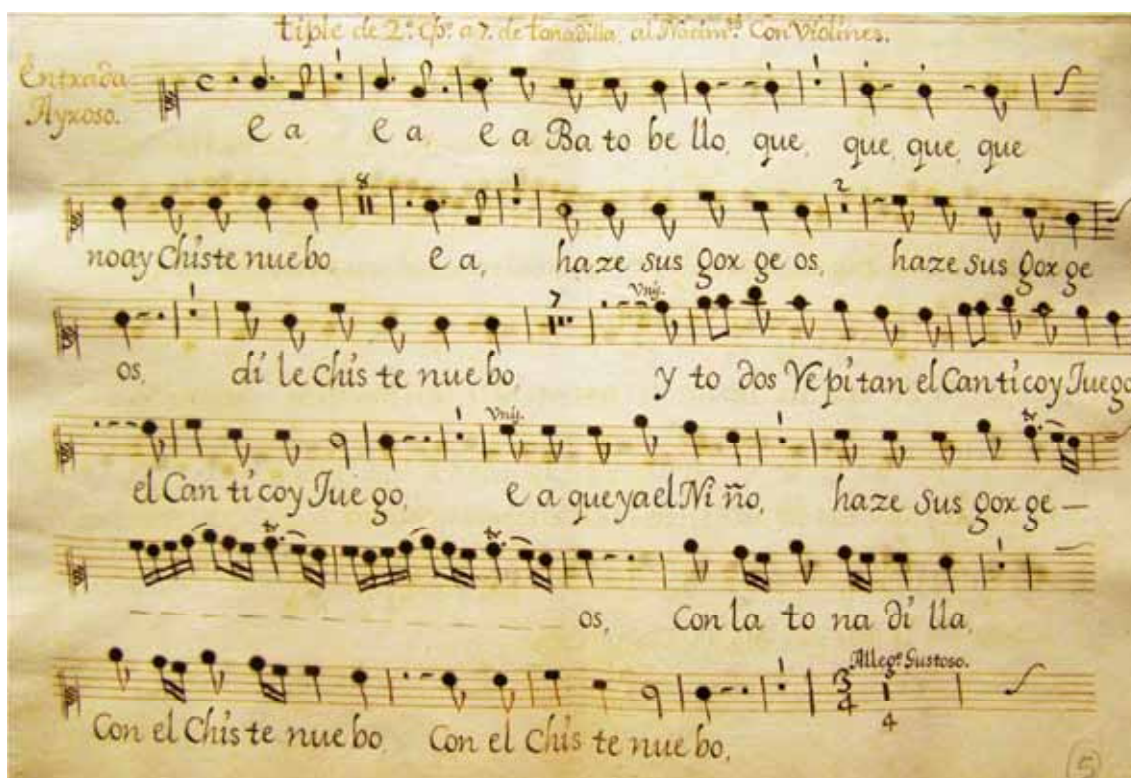 tiple de 2.º Cp.º a 7. de tonadilla, al Nacim.to Con Violines.
Entrada
Ayroso.
e a e a, e a Ba to be llo, que, que, que, que
no ay Chis te nue bo e a, haze sus gor ge os, haze sus gor ge
8
2
os, di le Chis te nue bo, y to dos Repi tan el Can ti co y Jue go
7
Vnij.
el Can ti co y Jue go, e a que ya el Ni ño, haze sus gor ge —
Vnij.
tr
os, Con la to na di lla,
tr tr
Con el Chis te nue bo Con el Chis te nue bo,
Alleg.º Gustoso.
3
4
4
5